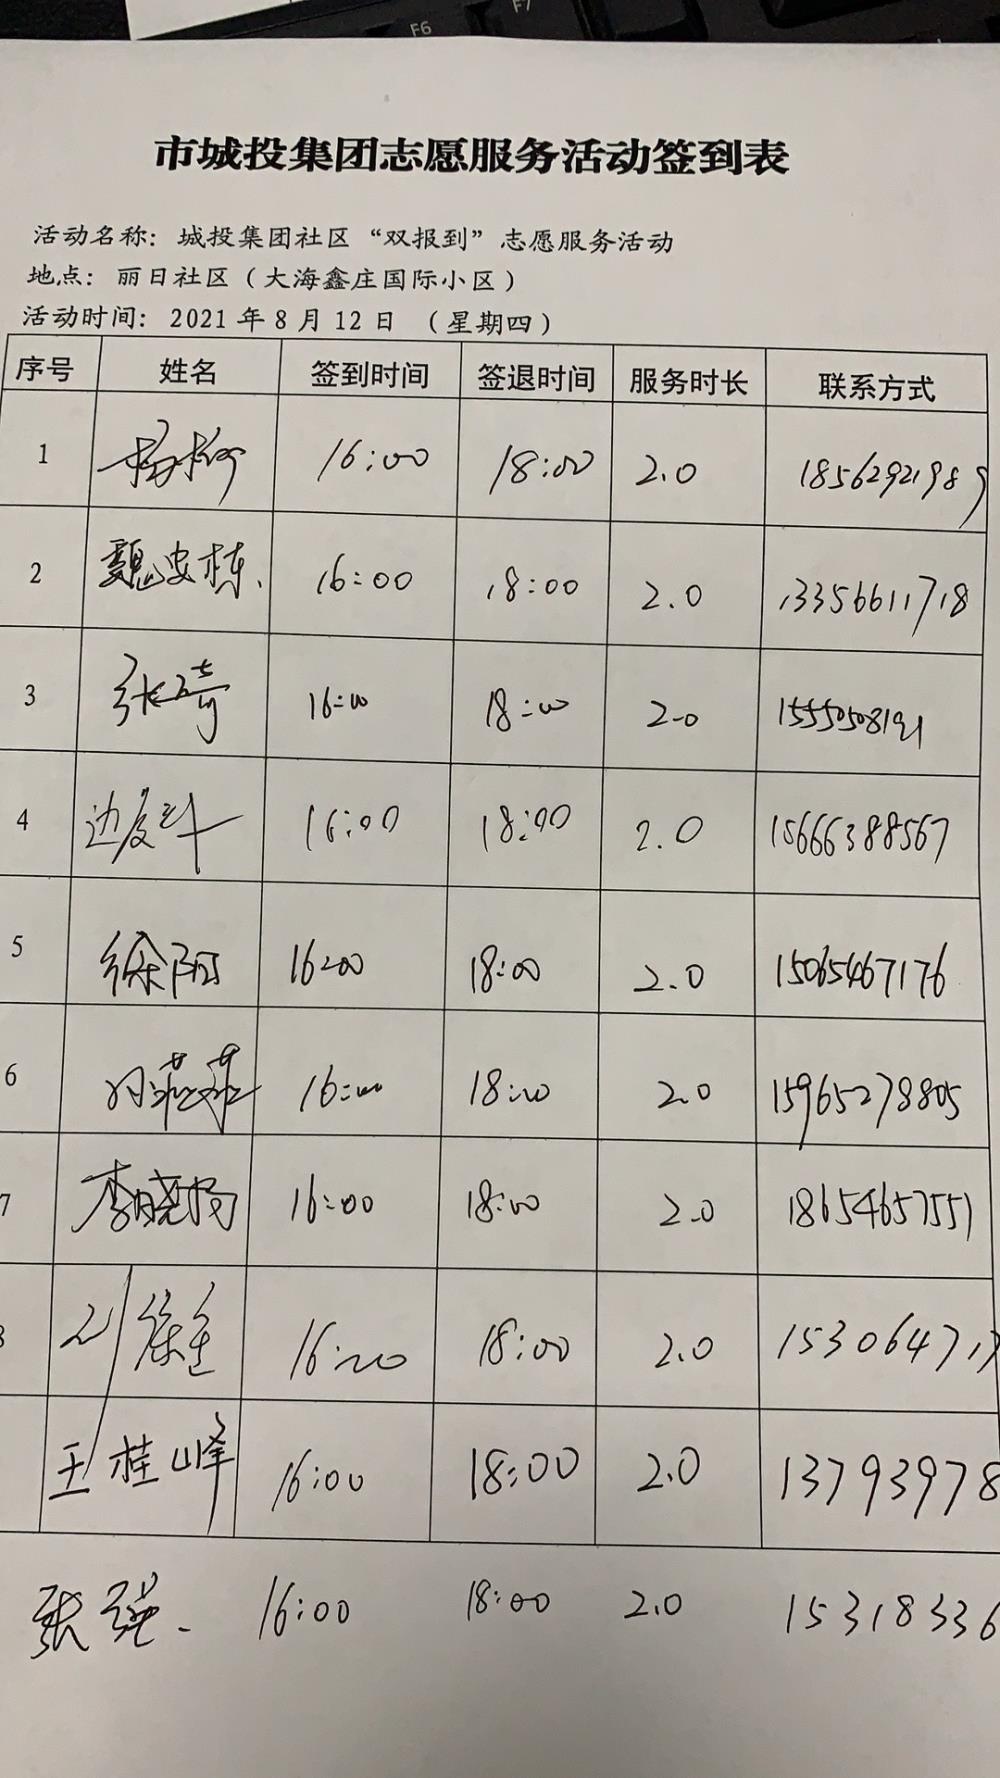 F6 F7
市城投集团志愿服务活动签到表
活动名称：城投集团社区“双报到”志愿服务活动
地点：丽日社区（大海鑫庄国际小区）
活动时间：2021年8月12日 （星期四）
序号 姓名 签到时间 签退时间 服务时长 联系方式
1 杨柳 16:00 18:00 2.0 18562921989
2 魏安栋 16:00 18:00 2.0 13356611718
3 张琦 16:00 18:00 2.0 15550508191
4 16:00 18:00 2.0 15666388567
5 徐阳 16:00 18:00 2.0 15065467176
6 16:00 18:00 2.0 15965278805
7 李晓杨 16:00 18:00 2.0 18654657551
16:20 18:00 2.0 153064717
王桂峰 16:00 18:00 2.0 13793978
张强 16:00 18:00 2.0 15318336